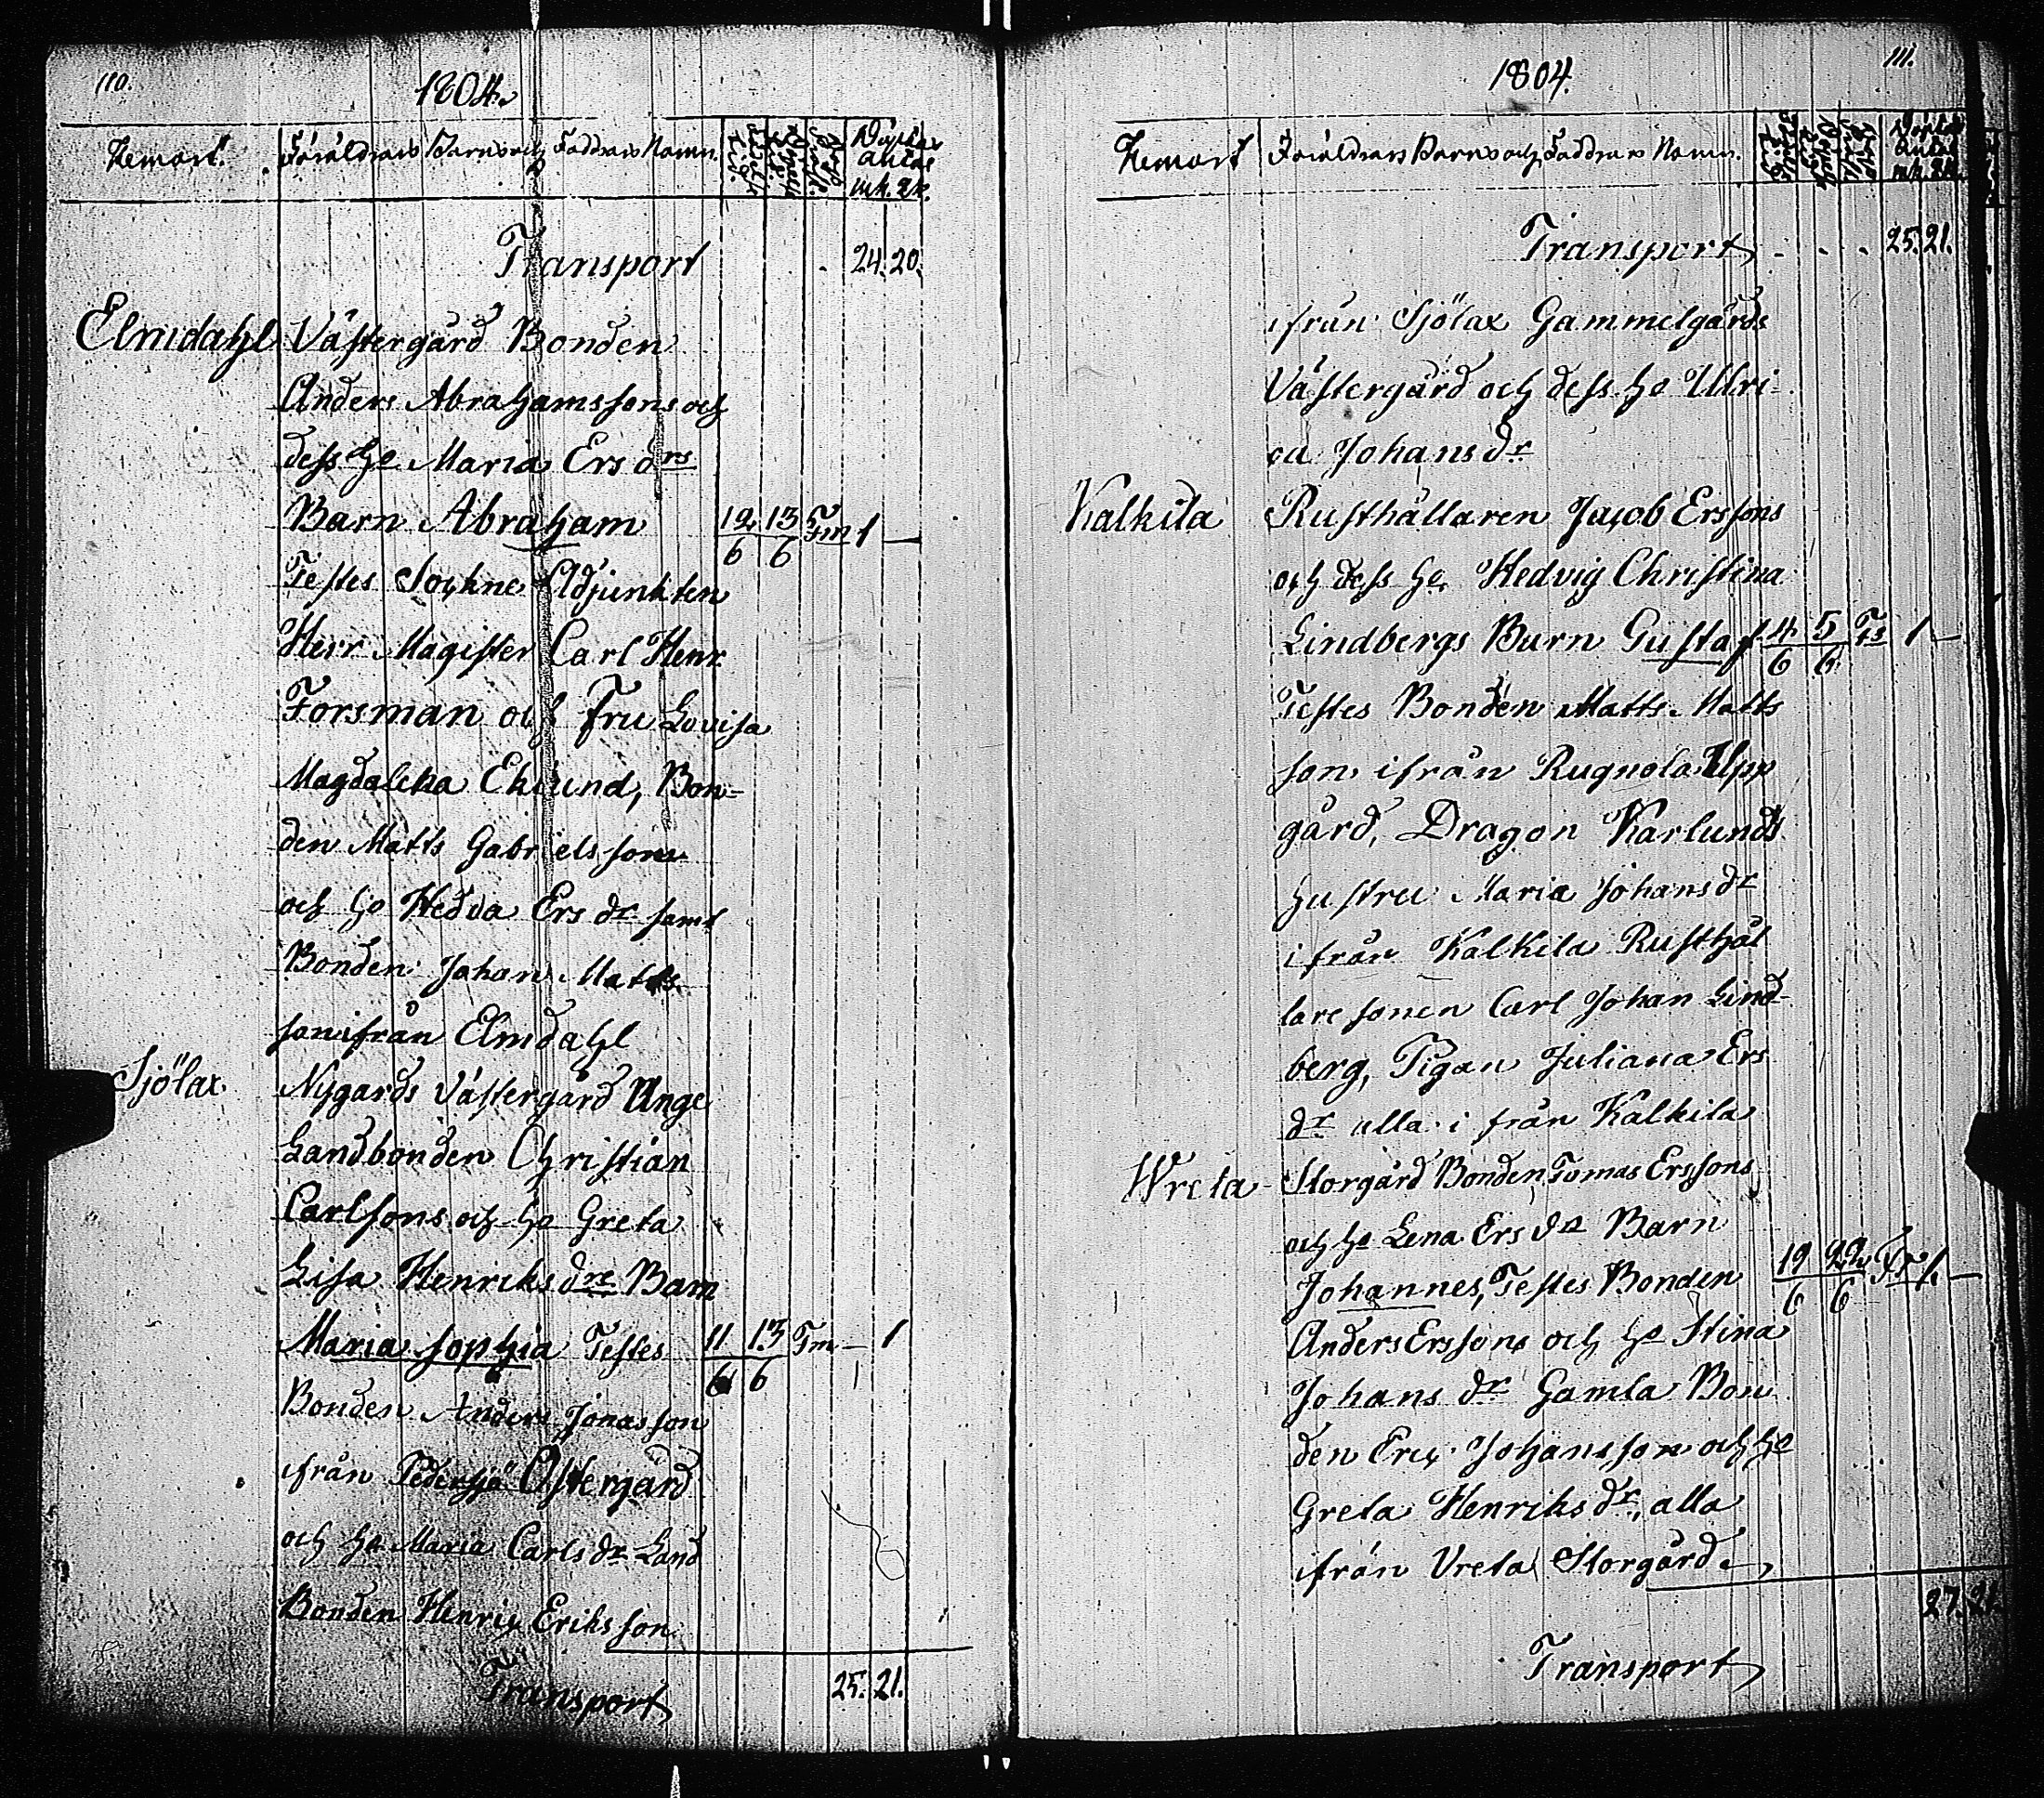 110.
1804.
Hemort. Föräldrars Barns och Faddrars Namn.
Döptas antal
mk. qk.
Transport . 24. 20.
Elmdahl Västergård Bonden
Anders Abrahamssons och
dess ho Maria Ers drs
Barn Abraham 12/6 13/6 Fm 1 —
Testes Sockne Adjunkten
Herr Magister Carl Henr
Forsman och Fru Lovisa
Magdalena Eklund, Bon-
den Matts Gabrielsson
och ho Hedda Ers dr samt
Bonden Johan Matts
son ifrån Elmdahl
Sjölax Nygards Västergård Unge
Landbonden Christian
Carlsons och ho Greta
Lisa Henriks drs Barn
Maria Sophia Testes 11/6 13/6 Fm — 1
Bonden Anders Jonasson
ifrån Pedersjö Östergård
och ho Maria Carls dr Land
Bonden Henric Eriksson
Transport 25. 21.
111.
1804.
Hemort Föräldrars Barns och Faddrars Namn.
Döptas antal
mk. qk.
Transport . . . 25. 21.
ifrån Sjölax Gammelgårds
Västergård och dess ho Ulri-
ca Johans dr
Kalkila Rusthållaren Jacob Erssons
och dess ho Hedvig Christina
Lindbergs Barn Gustaf 4/6 5/6 Fs 1 —
Testes Bonden Matts Matts
son ifrån Rugnola Upp
gård, Dragon Karlunds
hustru Maria Johans dr
ifrån Kalkila Rusthål
lare sonen Carl Johan Lind-
berg, Pigan Juliana Ers
dr alla i från Kalkila
Wreta Storgård Bonden Tomas Erssons
och ho Lena Ers drs Barn
Johannes, Testes Bonden 19/6 22/6 1. —
Anders Erssons och ho Stina
Johans dr Gamla Bon
den Eric Johansson och ho
Greta Henriks dr, alla
ifrån Vreta Storgård
27. 21.
Transport